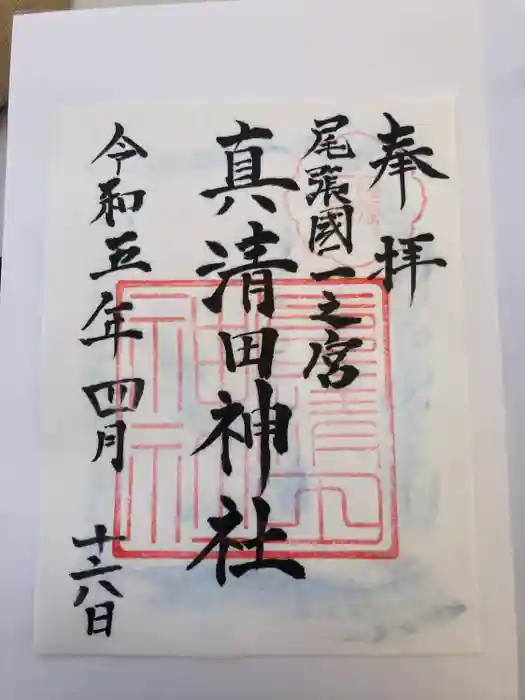 奉拝
尾張國一之宮
真清田神社
令和五年四月十六日